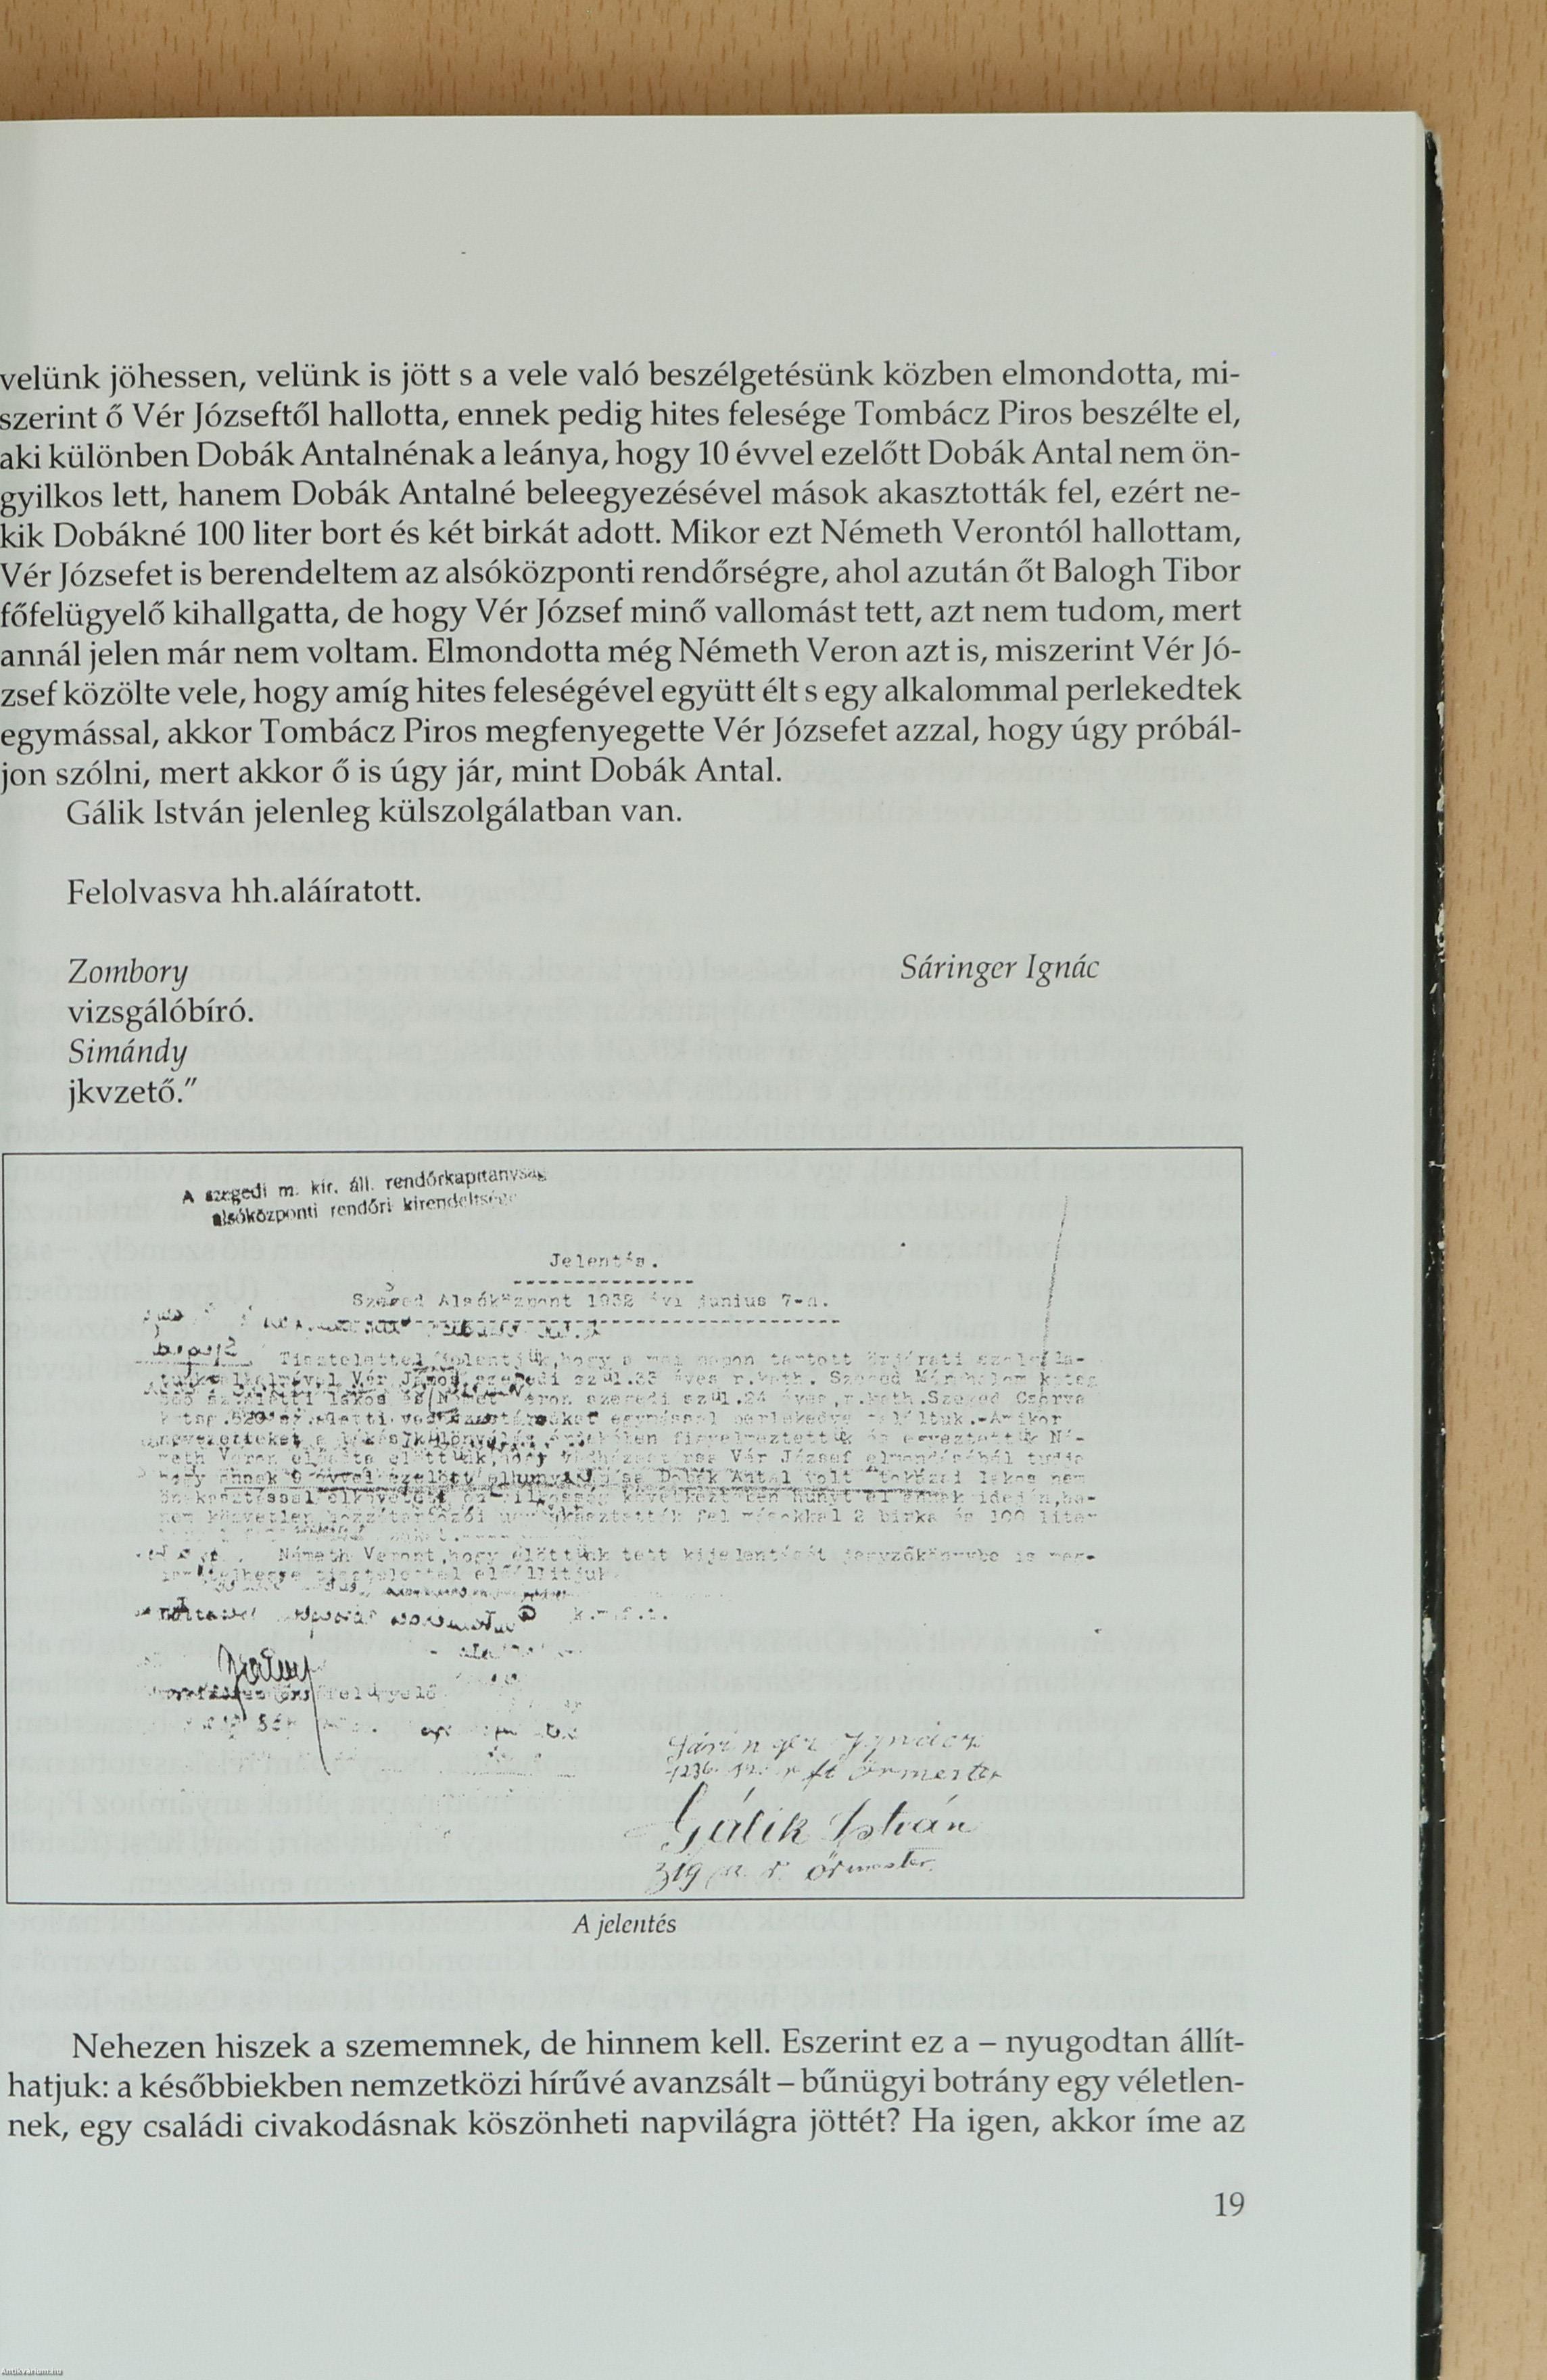 velünk jöhessen, velünk is jött s a vele való beszélgetésünk közben elmondotta, mi-
szerint ő Vér Józseftől hallotta, ennek pedig hites felesége Tombácz Piros beszélte el,
aki különben Dobák Antalnénak a leánya, hogy 10 évvel ezelőtt Dobák Antal nem ön-
gyilkos lett, hanem Dobák Antalné beleegyezésével mások akasztották fel, ezért ne-
kik Dobákné 100 liter bort és két birkát adott. Mikor ezt Németh Verontól hallottam,
Vér Józsefet is berendeltem az alsóközponti rendőrségre, ahol azután őt Balogh Tibor
főfelügyelő kihallgatta, de hogy Vér József minő vallomást tett, azt nem tudom, mert
annál jelen már nem voltam. Elmondotta még Németh Veron azt is, miszerint Vér Jó-
zsef közölte vele, hogy amíg hites feleségével együtt élt s egy alkalommal perlekedtek
egymással, akkor Tombácz Piros megfenyegette Vér Józsefet azzal, hogy úgy próbál-
jon szólni, mert akkor ő is úgy jár, mint Dobák Antal.
Gálik István jelenleg külszolgálatban van.
Felolvasva hh.aláíratott.
Zombory
Sáringer Ignác
vizsgálóbíró.
Simándy
jkvzető."
A szegedi m. kir. áll. rendőrkapitányság
alsóközponti rendőri kirendeltsége
Jelentés.
Szeged Alsóközpont 1932 évi junius 7-n.
Tisztelettel jelentjük, hogy a mai napon tartott őrjárati szolgála-
Vér János szegedi szül. 33 éves r.kath. Szeged
lakos és Német Veron szegedi szül. 24 éves, r.kath. Szeged Csorva
egymással perlekedve találtuk.-Amikor
figyelmeztettük és
Vér József elmondásából tudja
hogy ennek 9 évvel ezelőtt elhunyt Dobák Antal volt lakos nem
következtében hunyt el annak idején, ha-
nem közvetlen hozzátartozói akasztották fel másokkal 2 birka és 100 liter
Németh Veront, hogy előttünk tett kijelentését jegyzőkönyvbe is
tisztelettel előállitjuk.
k.m.f.t.
Sáringer Ignácz
őrmester
Gálik István
319 őrmester
A jelentés
Nehezen hiszek a szememnek, de hinnem kell. Eszerint ez a – nyugodtan állít-
hatjuk: a későbbiekben nemzetközi hírűvé avanzsált – bűnügyi botrány egy véletlen-
nek, egy családi civakodásnak köszönheti napvilágra jöttét? Ha igen, akkor íme az
19
Antikvarium.hu